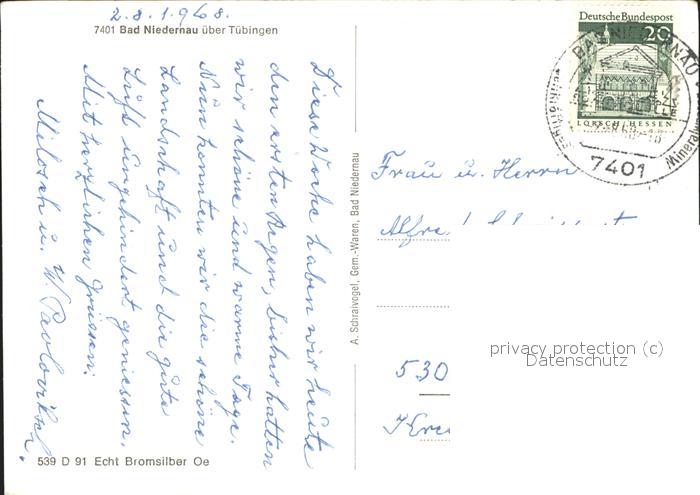 2.8.1968.
7401 Bad Niedernau über Tübingen
Diese Woche haben wir heute
den ersten Regen, bisher hatten
wir schöne und warme Tage.
Nun konnten wir die schöne
Landschaft und die gute
Luft ungehindert geniessen.
Mit herzlichen Grüssen:
Milosch u. W. Pavlovitsch.
539 D 91 Echt Bromsilber Oe
A. Schraivogel, Gem.-Waren, Bad Niedernau
Deutsche Bundespost
20
LORSCH HESSEN
BAD NIEDERNAU
7401
Mineral
Frau u. Herrn
Alfre
530
Kre
privacy protection (c)
Datenschutz